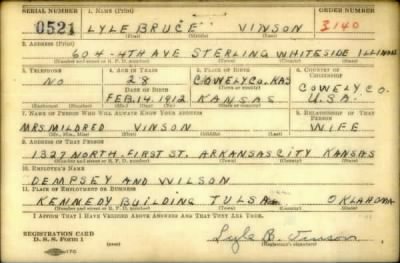 SERIAL NUMBER 1. NAME (Print) ORDER NUMBER
0521 LYLE BRUCE VINSON 3140
(First) (Middle) (Last)
2. ADDRESS (Print)
604-4TH AVE STERLING WHITESIDE ILLINOIS
(Number and street or R. F. D. number) (Town) (County) (State)
3. TELEPHONE 4. AGE IN YEARS 5. PLACE OF BIRTH 6. COUNTRY OF CITIZENSHIP
NO 28 COWELY CO. KAS COWELY CO.
DATE OF BIRTH (Town or county)
FEB. 14. 1912 KANSAS U.S.A.
(Exchange) (Number) (Mo.) (Day) (Yr.) (State or country)
7. NAME OF PERSON WHO WILL ALWAYS KNOW YOUR ADDRESS 8. RELATIONSHIP OF THAT PERSON
MRS. MILDRED VINSON WIFE
(Mr., Mrs., Miss) (First) (Middle) (Last)
9. ADDRESS OF THAT PERSON
1327 NORTH. FIRST ST. ARKANSAS CITY KANSAS
(Number and street or R. F. D. number) (Town) (County) (State)
10. EMPLOYER'S NAME
DEMPSEY AND WILSON
11. PLACE OF EMPLOYMENT OR BUSINESS
KENNEDY BUILDING TULSA OKLAHOMA
(Number and street or R. F. D. number) (Town) (County) (State)
I AFFIRM THAT I HAVE VERIFIED ABOVE ANSWERS AND THAT THEY ARE TRUE.
REGISTRATION CARD
D. S. S. Form 1 Lyle B. Vinson
(Registrant's signature)